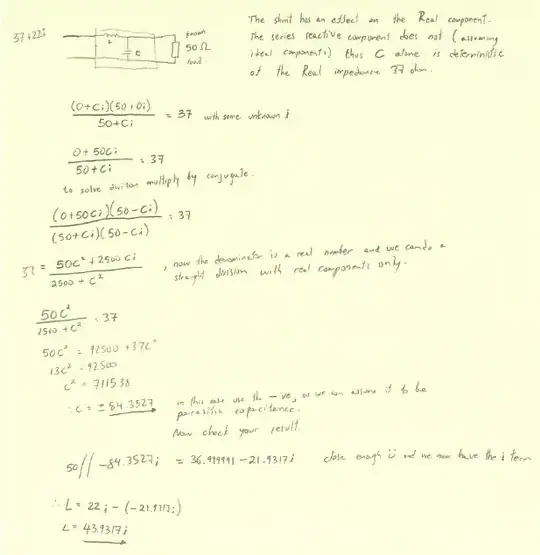 The shunt has an effect on the Real component.
The series reactive component does not (assuming
ideal components) thus C alone is deterministic
of the Real impedance 37 ohm.
37+22i
L
C
known
50 Ω
load.
(0+Ci)(50+0i) / 50+Ci = 37 with some unknown i
0+50Ci / 50+Ci = 37
to solve division multiply by conjugate.
(0+50Ci)(50-Ci) / (50+Ci)(50-Ci) = 37
37 = 50C² + 2500Ci / 2500 + C² , now the denominator is a real number and we can do a
straight division with real components only.
50C² / 2500 + C² = 37
50C² = 92500 + 37C²
13C² = 92500
C² = 7115.38
∴ C = ± 84.3527 in this case use the -ve, as we can assume it to be
parasitic capacitance.
Now check your result.
50 // -84.3527i = 36.999991 - 21.9317i close enough ü and we now have the i term
∴ L = 22i - (-21.9317i)
L = 43.9317i